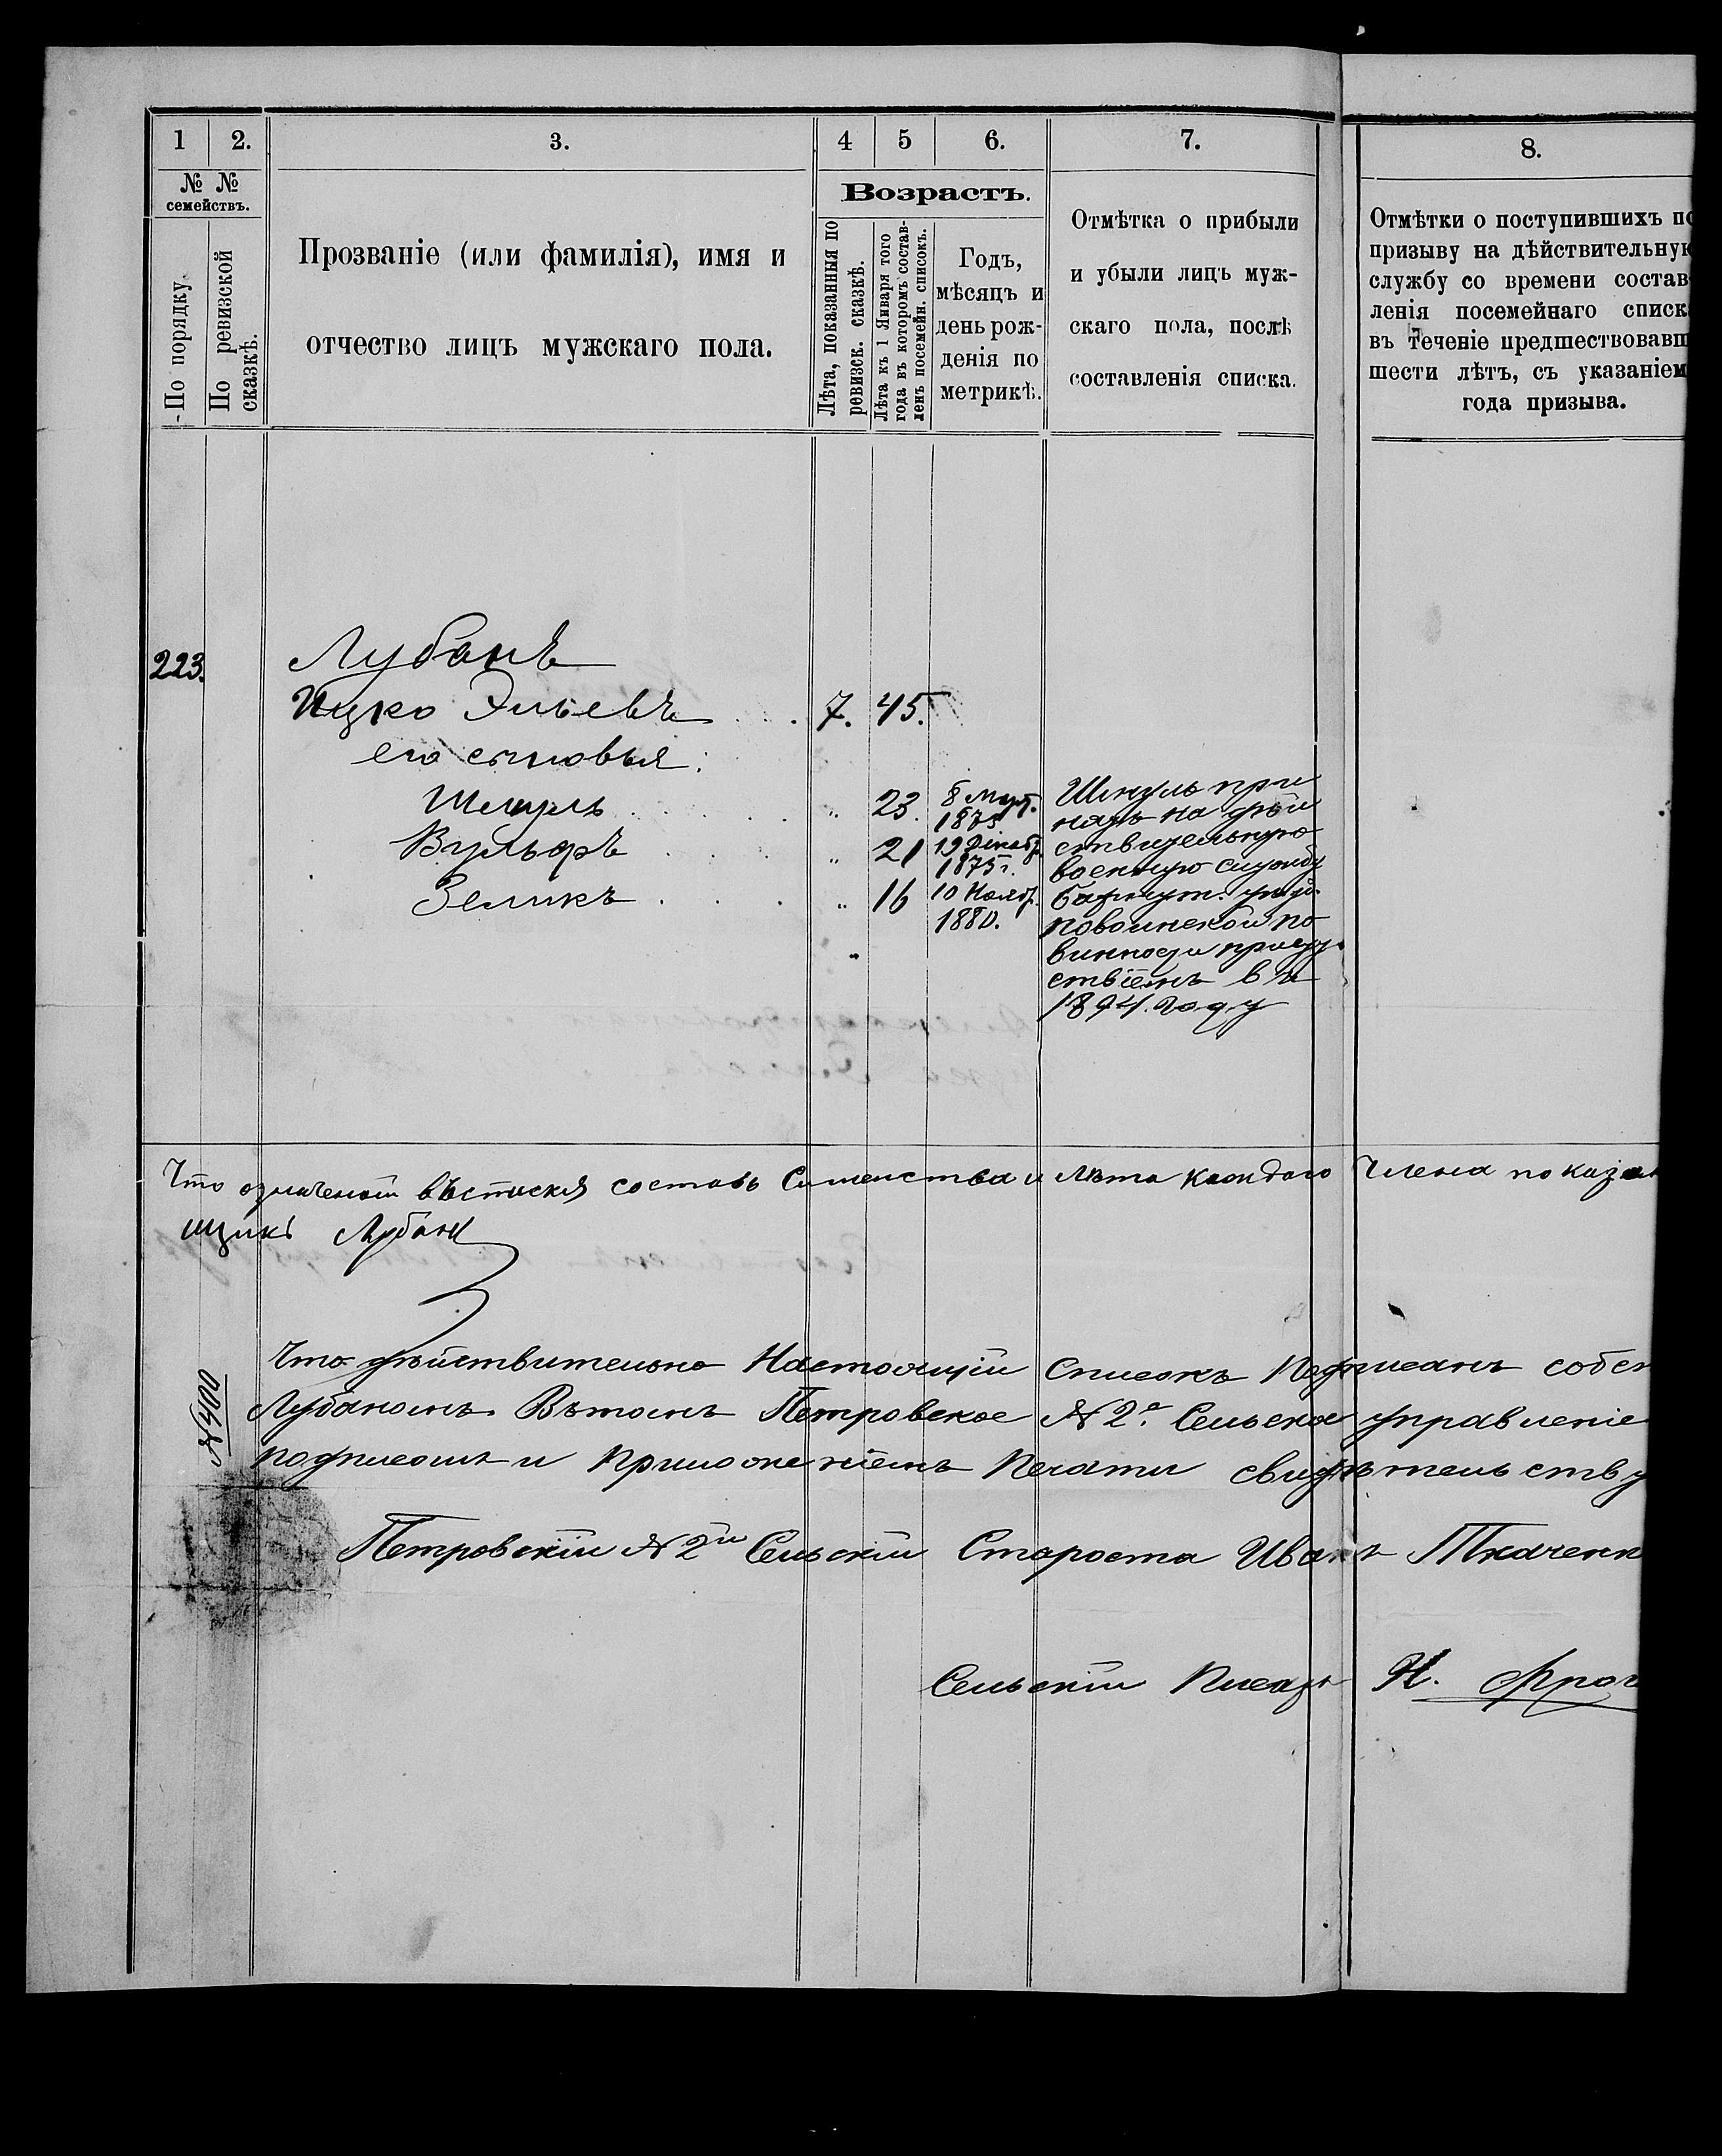 1 2. 3. 4 5 6. 7. 8.
№ № семействъ.
- По порядку.
По ревизской сказкѣ.
Прозваніе (или фамилія), имя и
отчество лицъ мужскаго пола.
Возрастъ.
Лѣта, показанныя по ревизск. сказкѣ.
Лѣта къ 1 Января того года въ которомъ составленъ посемейн. списокъ.
Годъ,
мѣсяцъ и
день рож-
денія по
метрикѣ.
Отмѣтка о прибыли
и убыли лицъ муж-
скаго пола, послѣ
составленія списка.
Отмѣтки о поступившихъ по
призыву на дѣйствительную
службу со времени состав
ленія посемейнаго списк
въ теченіе предшествовавш
шести лѣтъ, съ указаніем
года призыва.
223. Лубанъ
Ицко Эльевъ 7. 45.
его сыновья:
Шмуль „ 23. 8 Март. 1873
Вульфъ „ 21 19 Декабр. 1875 г.
Зеликъ „ 16 10 Ноябр. 1880.
Шмуль при
нятъ на дѣй
ствительную
военную службу
Бахмут. уѣзд.
по воинской по
винности присут
ствіемъ въ
1894. году
Что означеный въспискѣ составъ Сименства и Лѣта каждаго Члена показан
ицикъ Лубан
Что дѣйствительно Настоящій Списокъ Подписанъ собст
Лубаномъ. Вътомъ Петровское № 2е. Сельское управленіе
подписомъ и приложеніемъ Печати свидѣтельству
№ 400
Петровскій № 2й Сельскій Староста Иванъ Ткаченк
Сельскій Писарь Н.